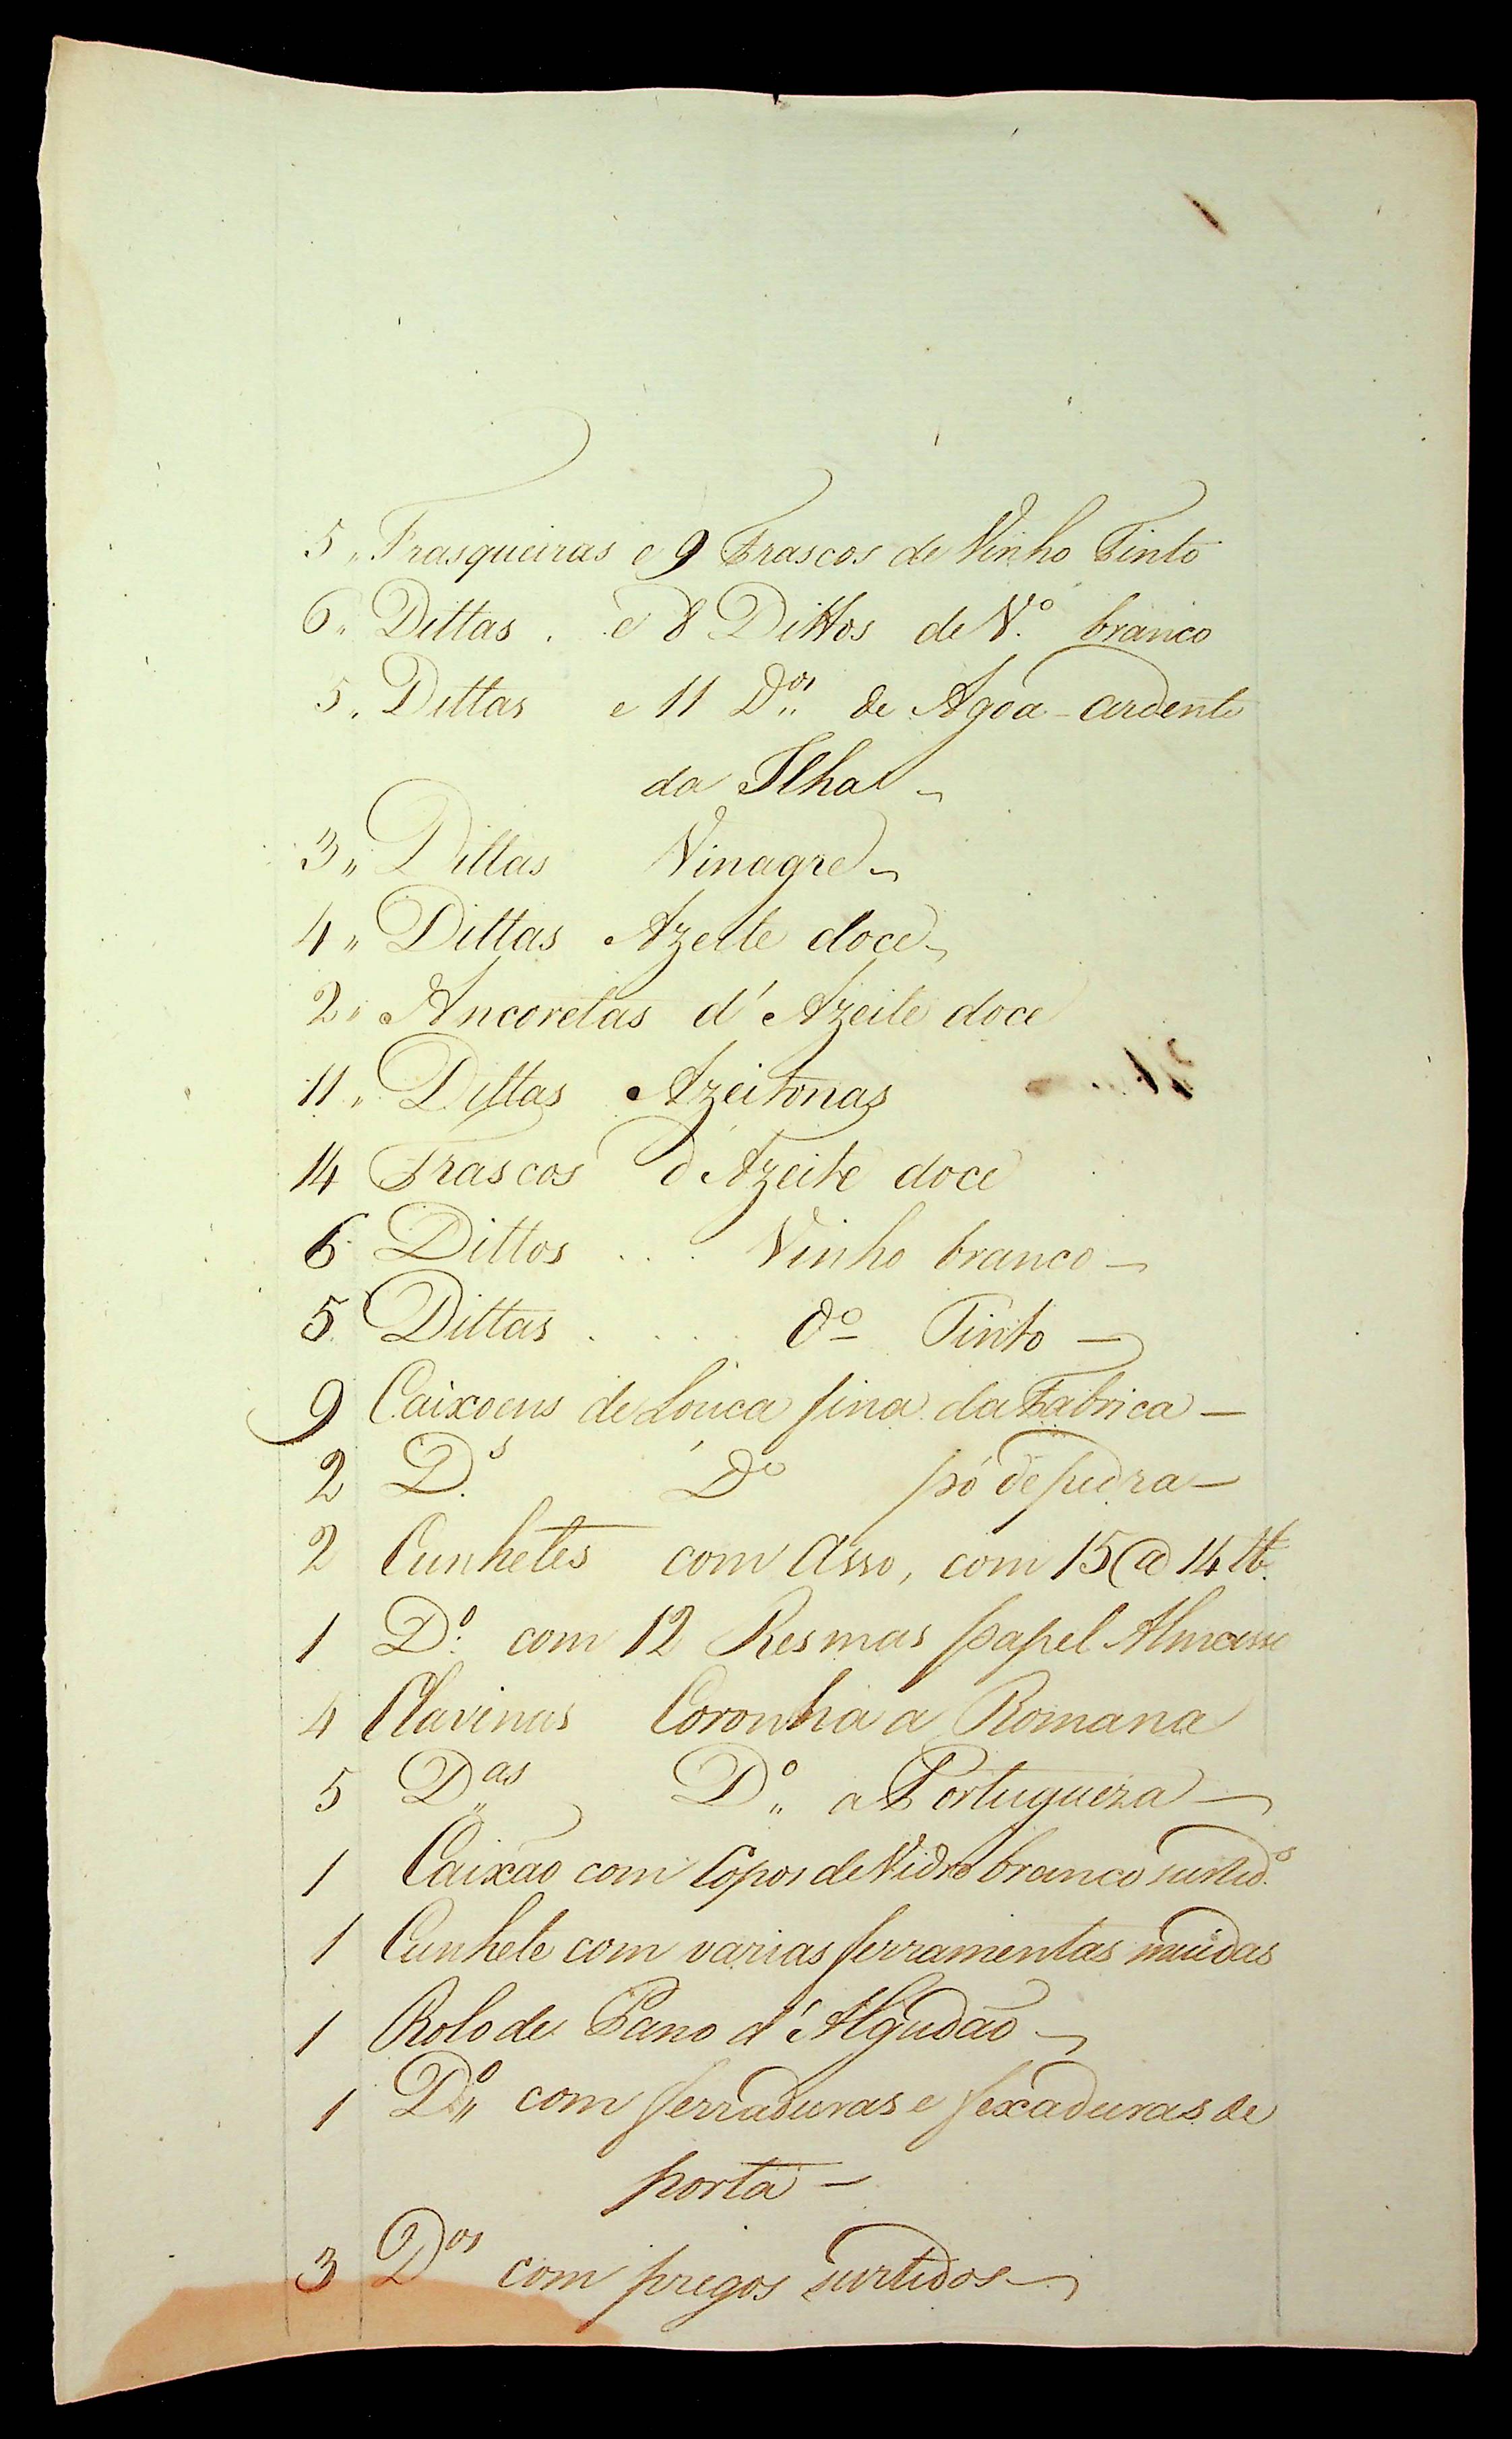 5 " Frasqueiras e 9 Frascos de Vinho Tinto
6 " Dittas . e 8 Dittos de V.º branco
5 " Dittas e 11 D.os de Agoa-ardente
da Ilha
3 " Dittas Vinagre
4 " Dittas Azeite doce
2 " Ancoretas d'Azeite doce
11 " Dittas Azeitonas
14 Frascos d'Azeite doce
6 Dittos . . . Vinho branco
5 Dittas . . . . dº Tinto
9 Caixoens de Louca fina da Fabrica
2 D.s Dº pó de pedra
2 Cunhetes com Asso, com 15 @ 14 lb.
1 D.º com 12 Resmas papel Almasso
4 Clavinas Coronha a Romana
5 D.as D.º a Portugueza
1 Caixão com Copos de Vidro branco surtid.os
1 Cunhete com varias ferramentas miudas
1 Rolo de Pano d'Algudão
1 D.º com ferraduras e fexaduras de
porta
3 D.os com pregos surtidos